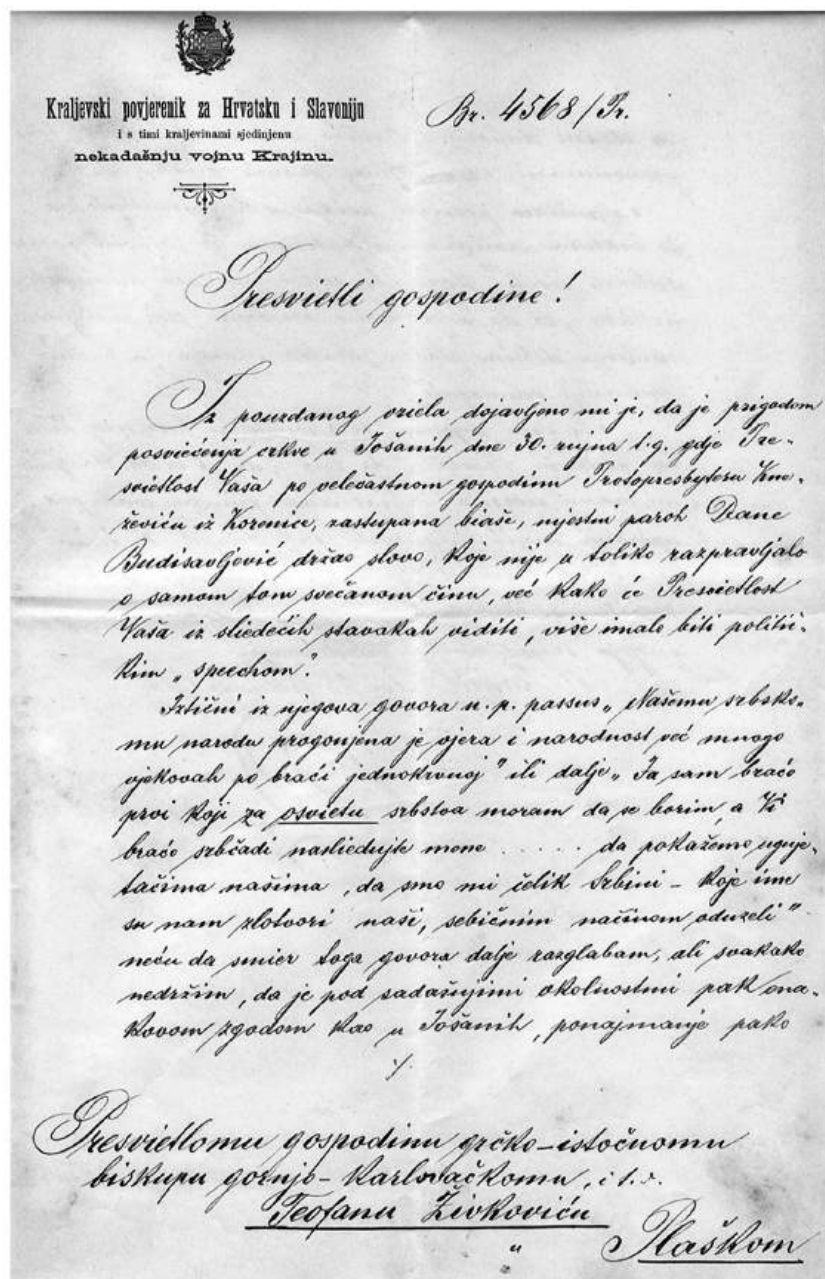 Kraljevski povjerenik za Hrvatsku i Slavoniju
i s timi kraljevinami sjedinjenu
nekadašnju vojnu Krajinu.
Br. 4568/Pr.
Presvietli gospodine!
Iz pouzdanog vriela dojavljeno mi je, da je prigodom
posvićenja crkve u Jošanih dne 30. rujna t.g. gdje Pre-
svietlost Vaša po velečastnom gospodinu Protopresbyteru Kne-
ževiću iz Korenice, zastupana biaše, mjestni paroh Dane
Budisavljević držao slovo, koje nije u toliko razpravljalo
o samom tom svečanom činu, već kako će Presvietlost
Vaša iz sliedećih stavakah viditi, više imalo biti politič-
kim „speechom".
Iztičući iz njegova govora n. p. passus „Našemu srbsko-
mu narodu progonjena je vjera i narodnost već mnogo
vjekovah po braći jednokrvnoj" ili dalje „Ja sam braćo
prvi koji za osvietu srbstva moram da se borim, a Vi
braćo srbčadi nasliedujte mene ..... da pokažemo ugnje-
tačima našima, da smo mi čelik Srbini - koje ime
su nam zlotvori naši, sebičnim načinom oduzeli"
neću da smier toga govora dalje razglabam, ali svakako
nedržim, da je pod sadašnjimi okolnostmi pak ona-
kovom zgodom kao u Jošanih, ponajmanje pako
./.
Presvietlomu gospodinu grčko-istočnomu
biskupu gornjo-karlovačkomu, i t. d.
Teofanu Živkoviću
u Plaškom